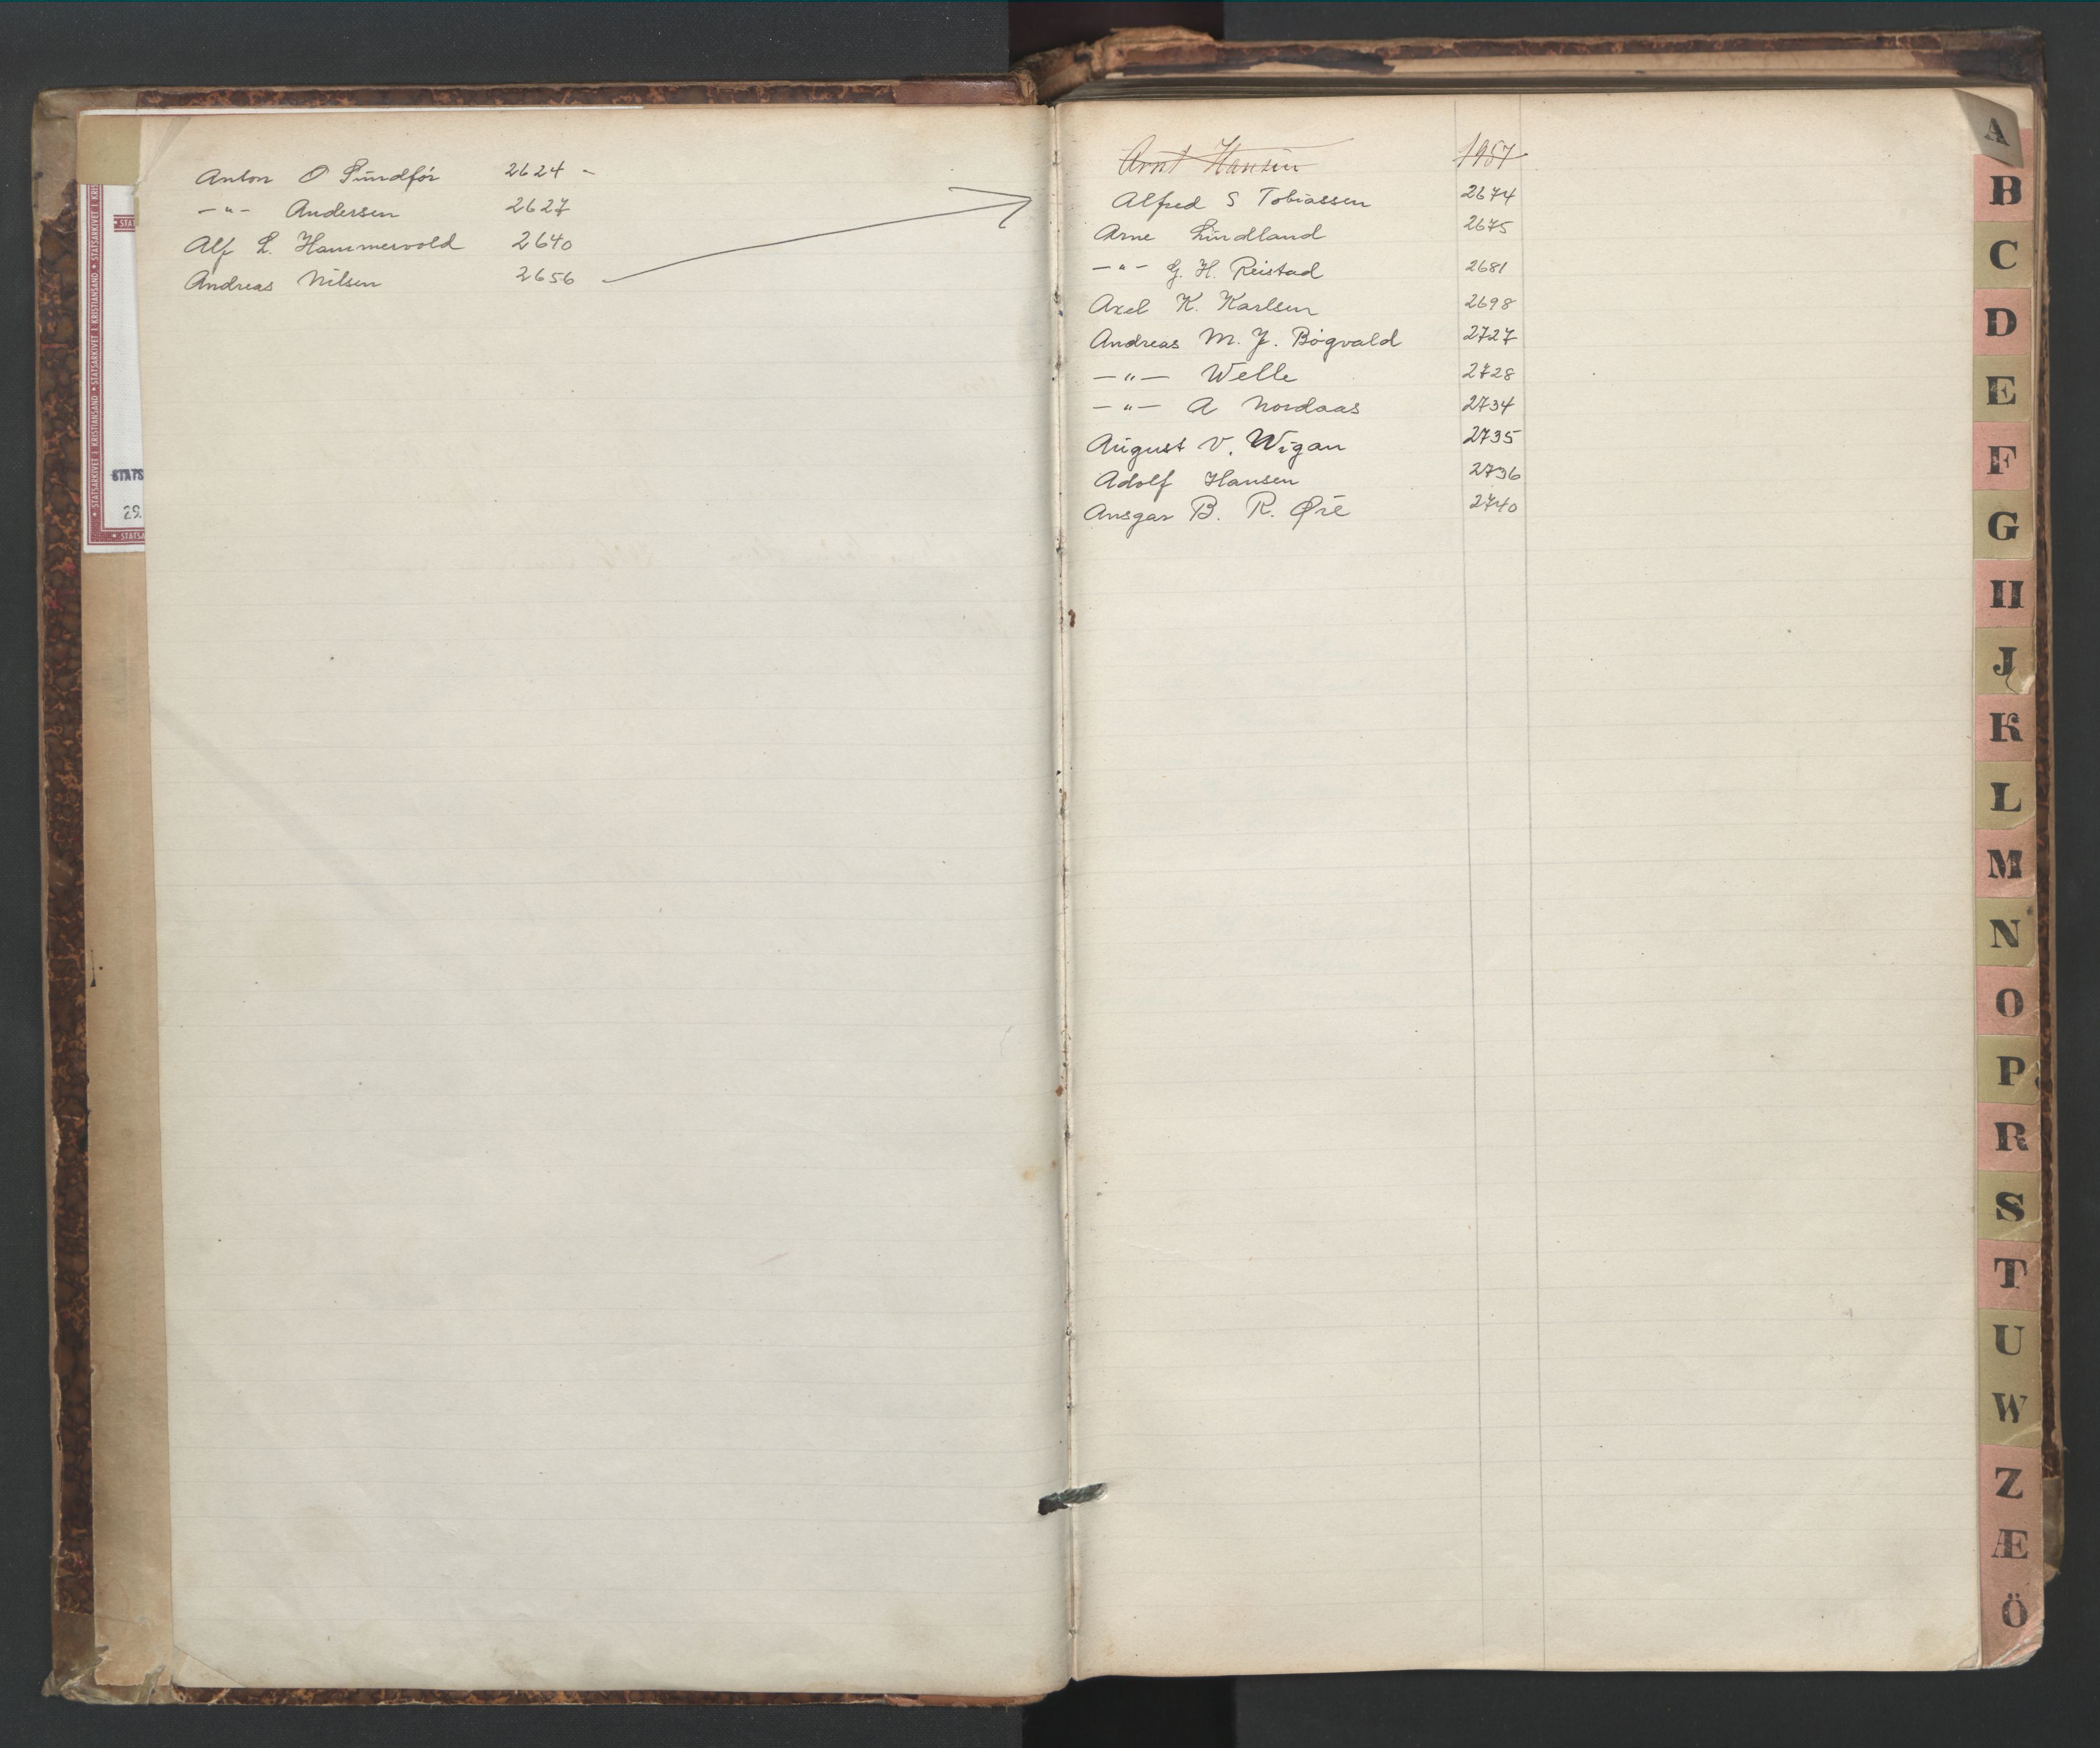 Anton O Sundför 2624 -
-"- Andersen 2627
Alf L. Hammervold 2640
Andreas Nilsen 2656
STATSARKIVET I KRISTIANSAND • STATSARKIVET I KRISTIANSAND
STATS
29.
Arnt Hansen 1957
Alfred S Tobiassen 2674
Arne Lindland 2675
-"- G. H. Reistad 2681
Axel K. Karlsen 2698
Andreas M. J. Bögvald 2727
-"- Welle 2728
-"- A Nordaas 2734
August V. Wigan 2735
Adolf Hansen 2736
Ansgar B. R. Øie 2740
A
B
C
D
E
F
G
H
J
K
L
M
N
O
P
R
S
T
U
W
Z
Æ
Ö